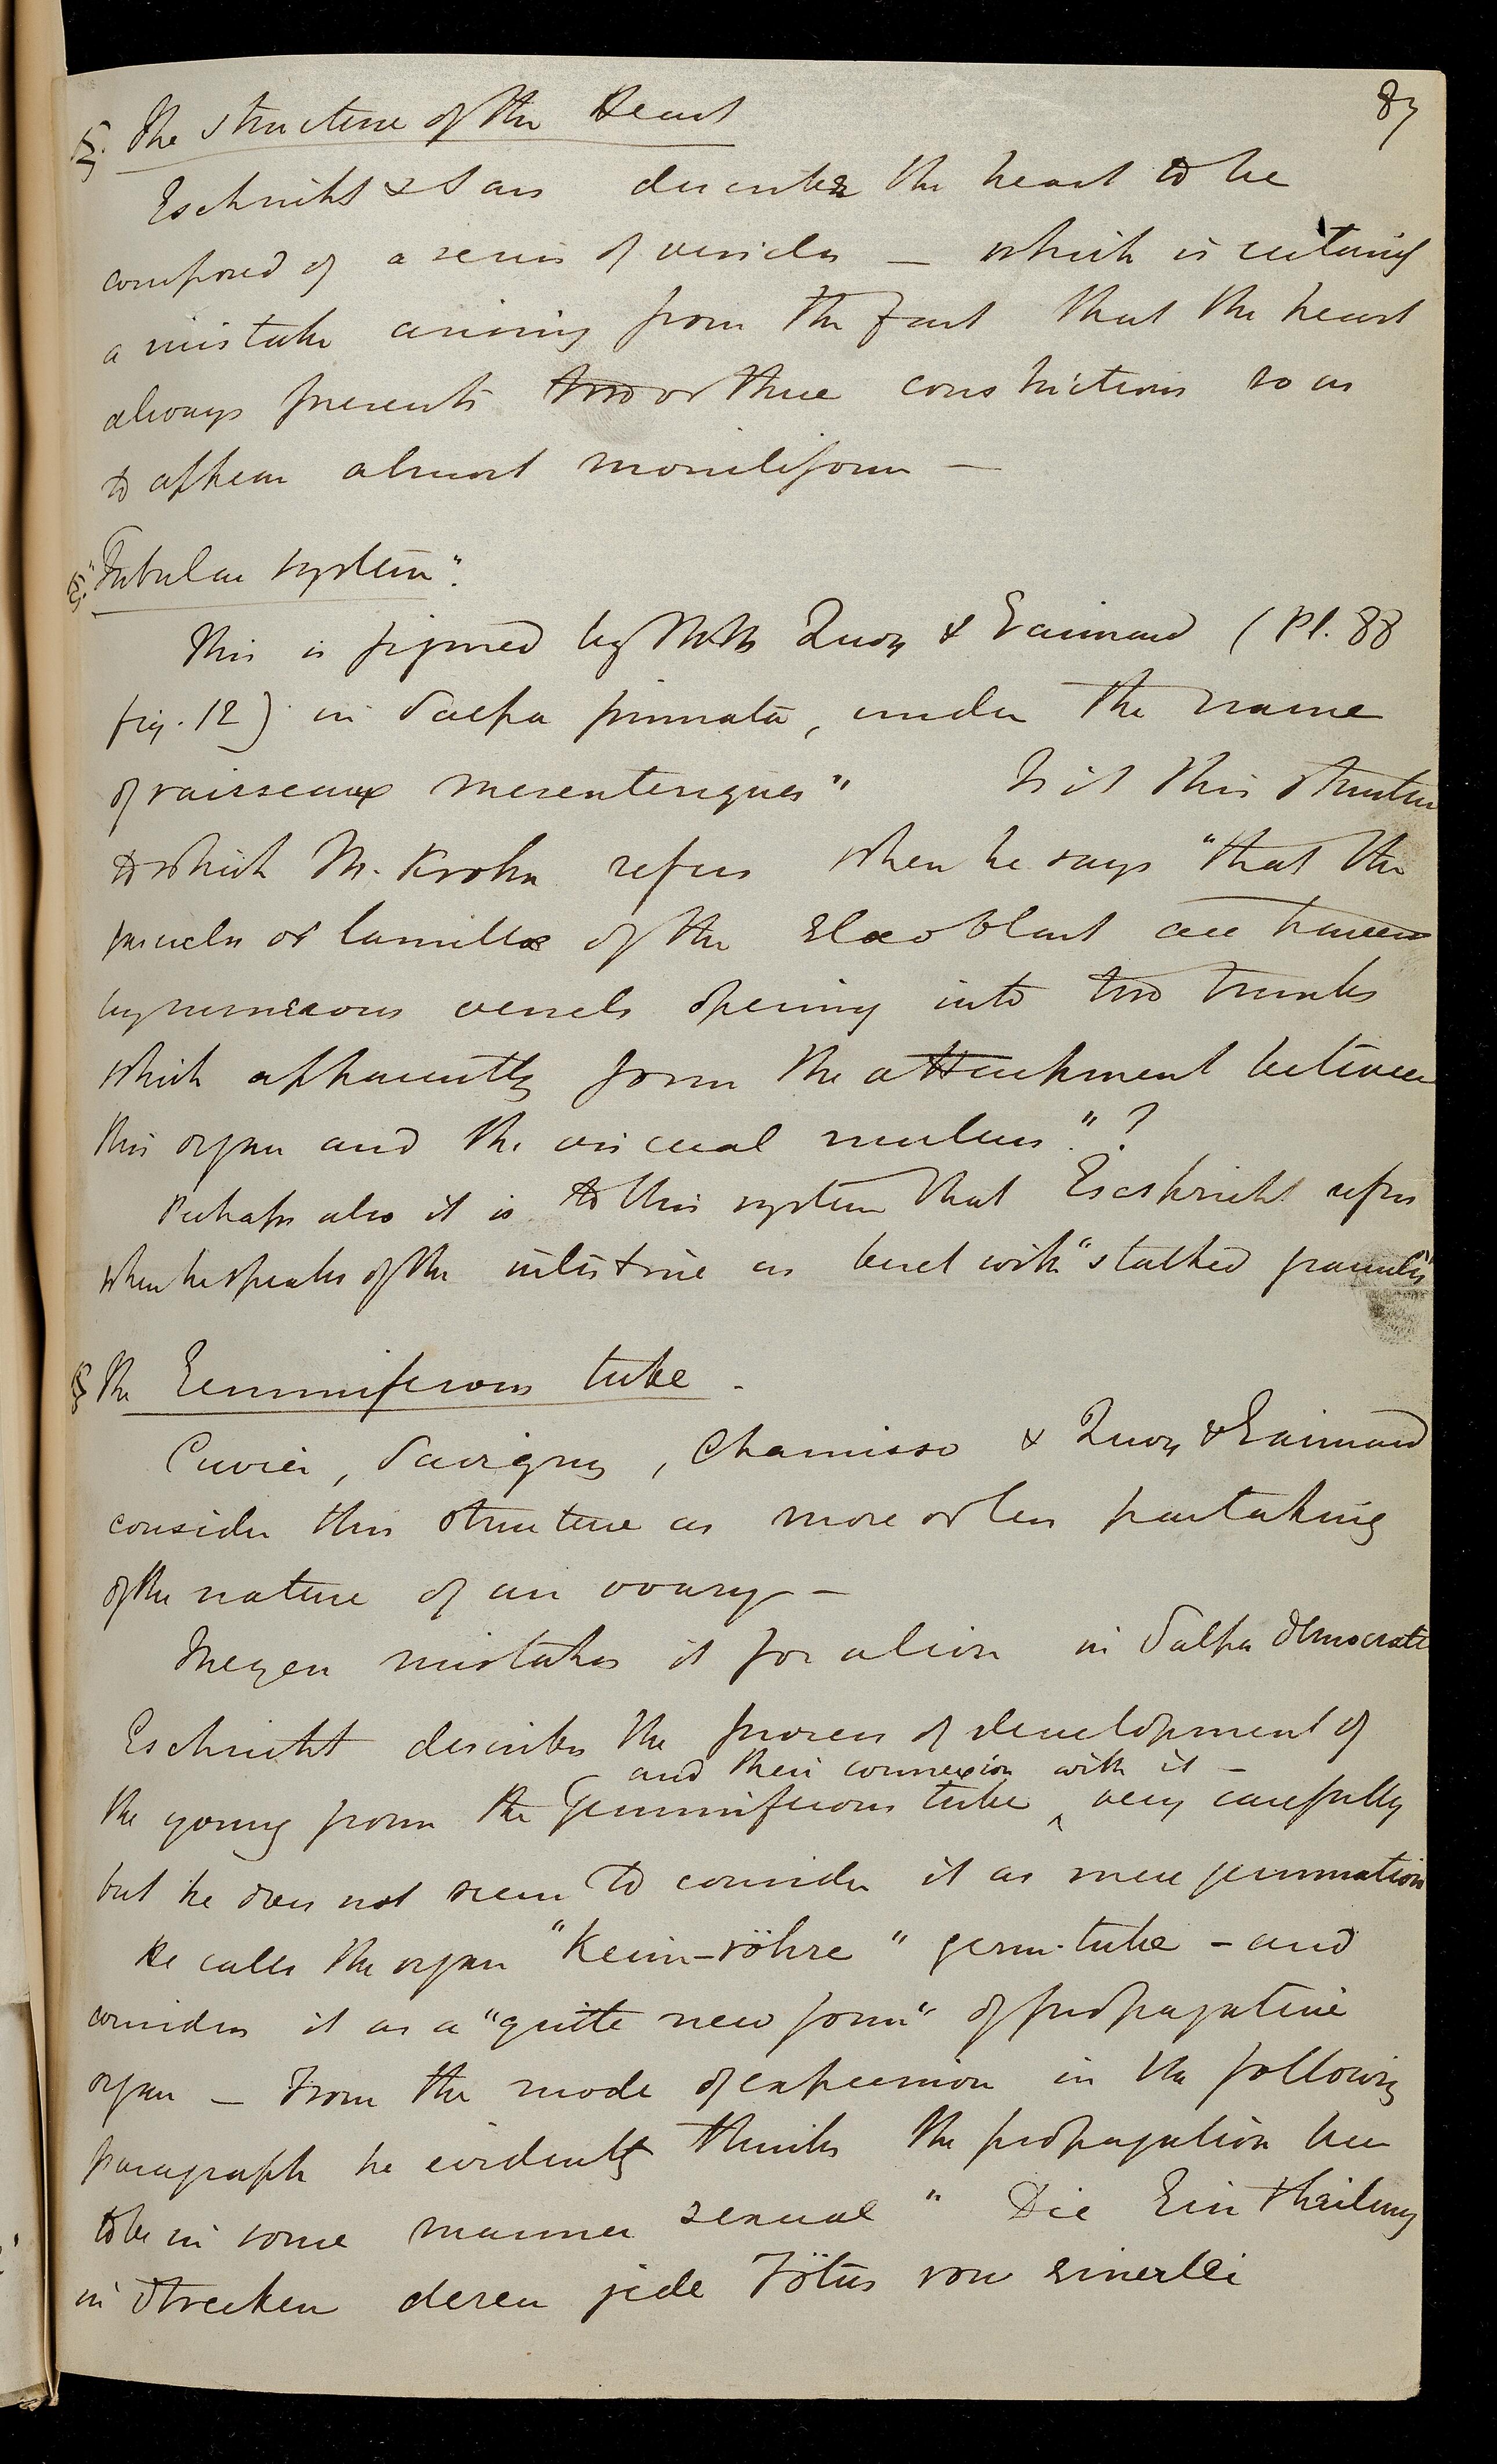 87
§. The structure of the Heart
Eschricht & Sars describe the heart to be
composed of a series of vesicles — which is certainly
a mistake arising from the fact that the heart
always presents two or three constrictions so as
to appear almost moniliform —
§. "Tubular system".
This is figured by MM Quoy & Gaimard (Pl. 88
fig. 12) in Salpa pinnata, under the name
of vaisseaux mesenteriques" Is it this structure
to which M. Krohn refers when he says "that the
or lamillae of the Elæoblast are
by numerous vessels opening into two trunks
which apparently form the attachment between
this organ and the visceral nucleus"?
Perhaps also it is to this system that Eschricht refers
when he speaks of the intestine as beset with "stalked granules"
§ The Gemmiferous tube.
Cuvier, Savigny, Chamisso & Quoy & Gaimard
consider this structure as more or less partaking
of the nature of an ovary —
Meyen mistakes it for a liver in Salpa democratica
Eschricht describes the process of development of
and their connexion with it —
the young from the Gemmiferous tube ^ very carefully
but he does not seem to consider it as mere gemmation
He calls the organ "Keim-röhre" germ-tube — and
considers it as a "quite new form" of propagative
organ — From the mode of expression in the following
paragraph he evidently thinks the propagation here
to be in some manner sexual "Die Eintheilung
in Strecken deren jede Fötus von einerlei